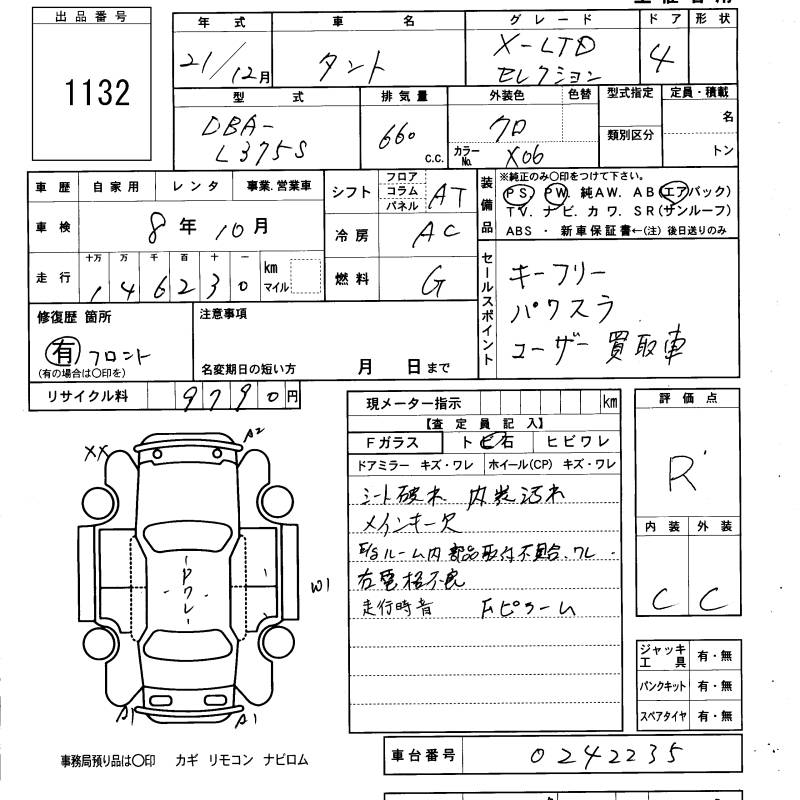 出品番号
1132
年式
21/12月
車名
タント
グレード
X-LTD
セレクション
ドア
4
形状
型式
DBA-
L375S
排気量
660
c.c.
外装色
クロ
色替
カラーNo.
X06
型式指定
類別区分
定員・積載
名
トン
車歴
自家用
レンタ
事業.営業車
車検
8年10月
走行
十万 万 千 百 十 一
146230
km
マイル
シフト
フロア
コラム
パネル
AT
冷房
AC
燃料
G
装備品
※純正のみ〇印をつけて下さい。
PS. PW. 純AW. AB(エアバック)
TV. ナビ. カワ. SR(サンルーフ)
ABS ・ 新車保証書←(注) 後日送りのみ
セールスポイント
キーフリー
パワスラ
ユーザー買取車
修復歴 箇所
有 フロント
(有の場合は〇印を)
注意事項
名変期日の短い方 月 日まで
リサイクル料
9790円
現メーター指示
km
【査定員記入】
Fガラス
トビ石
ヒビワレ
ドアミラー キズ・ワレ
ホイール(CP) キズ・ワレ
シート破れ 内装汚れ
メインキー欠
E/Sルーム内 部品取付不具合.ワレ
右電格不良
走行時音 Fピラーム
評価点
R
内装
外装
C
C
A2
XX
PワレW1
A1
A1
ジャッキ
工具
有・無
パンクキット
有・無
スペアタイヤ
有・無
事務局預り品は〇印 カギ リモコン ナビロム
車台番号
0242235